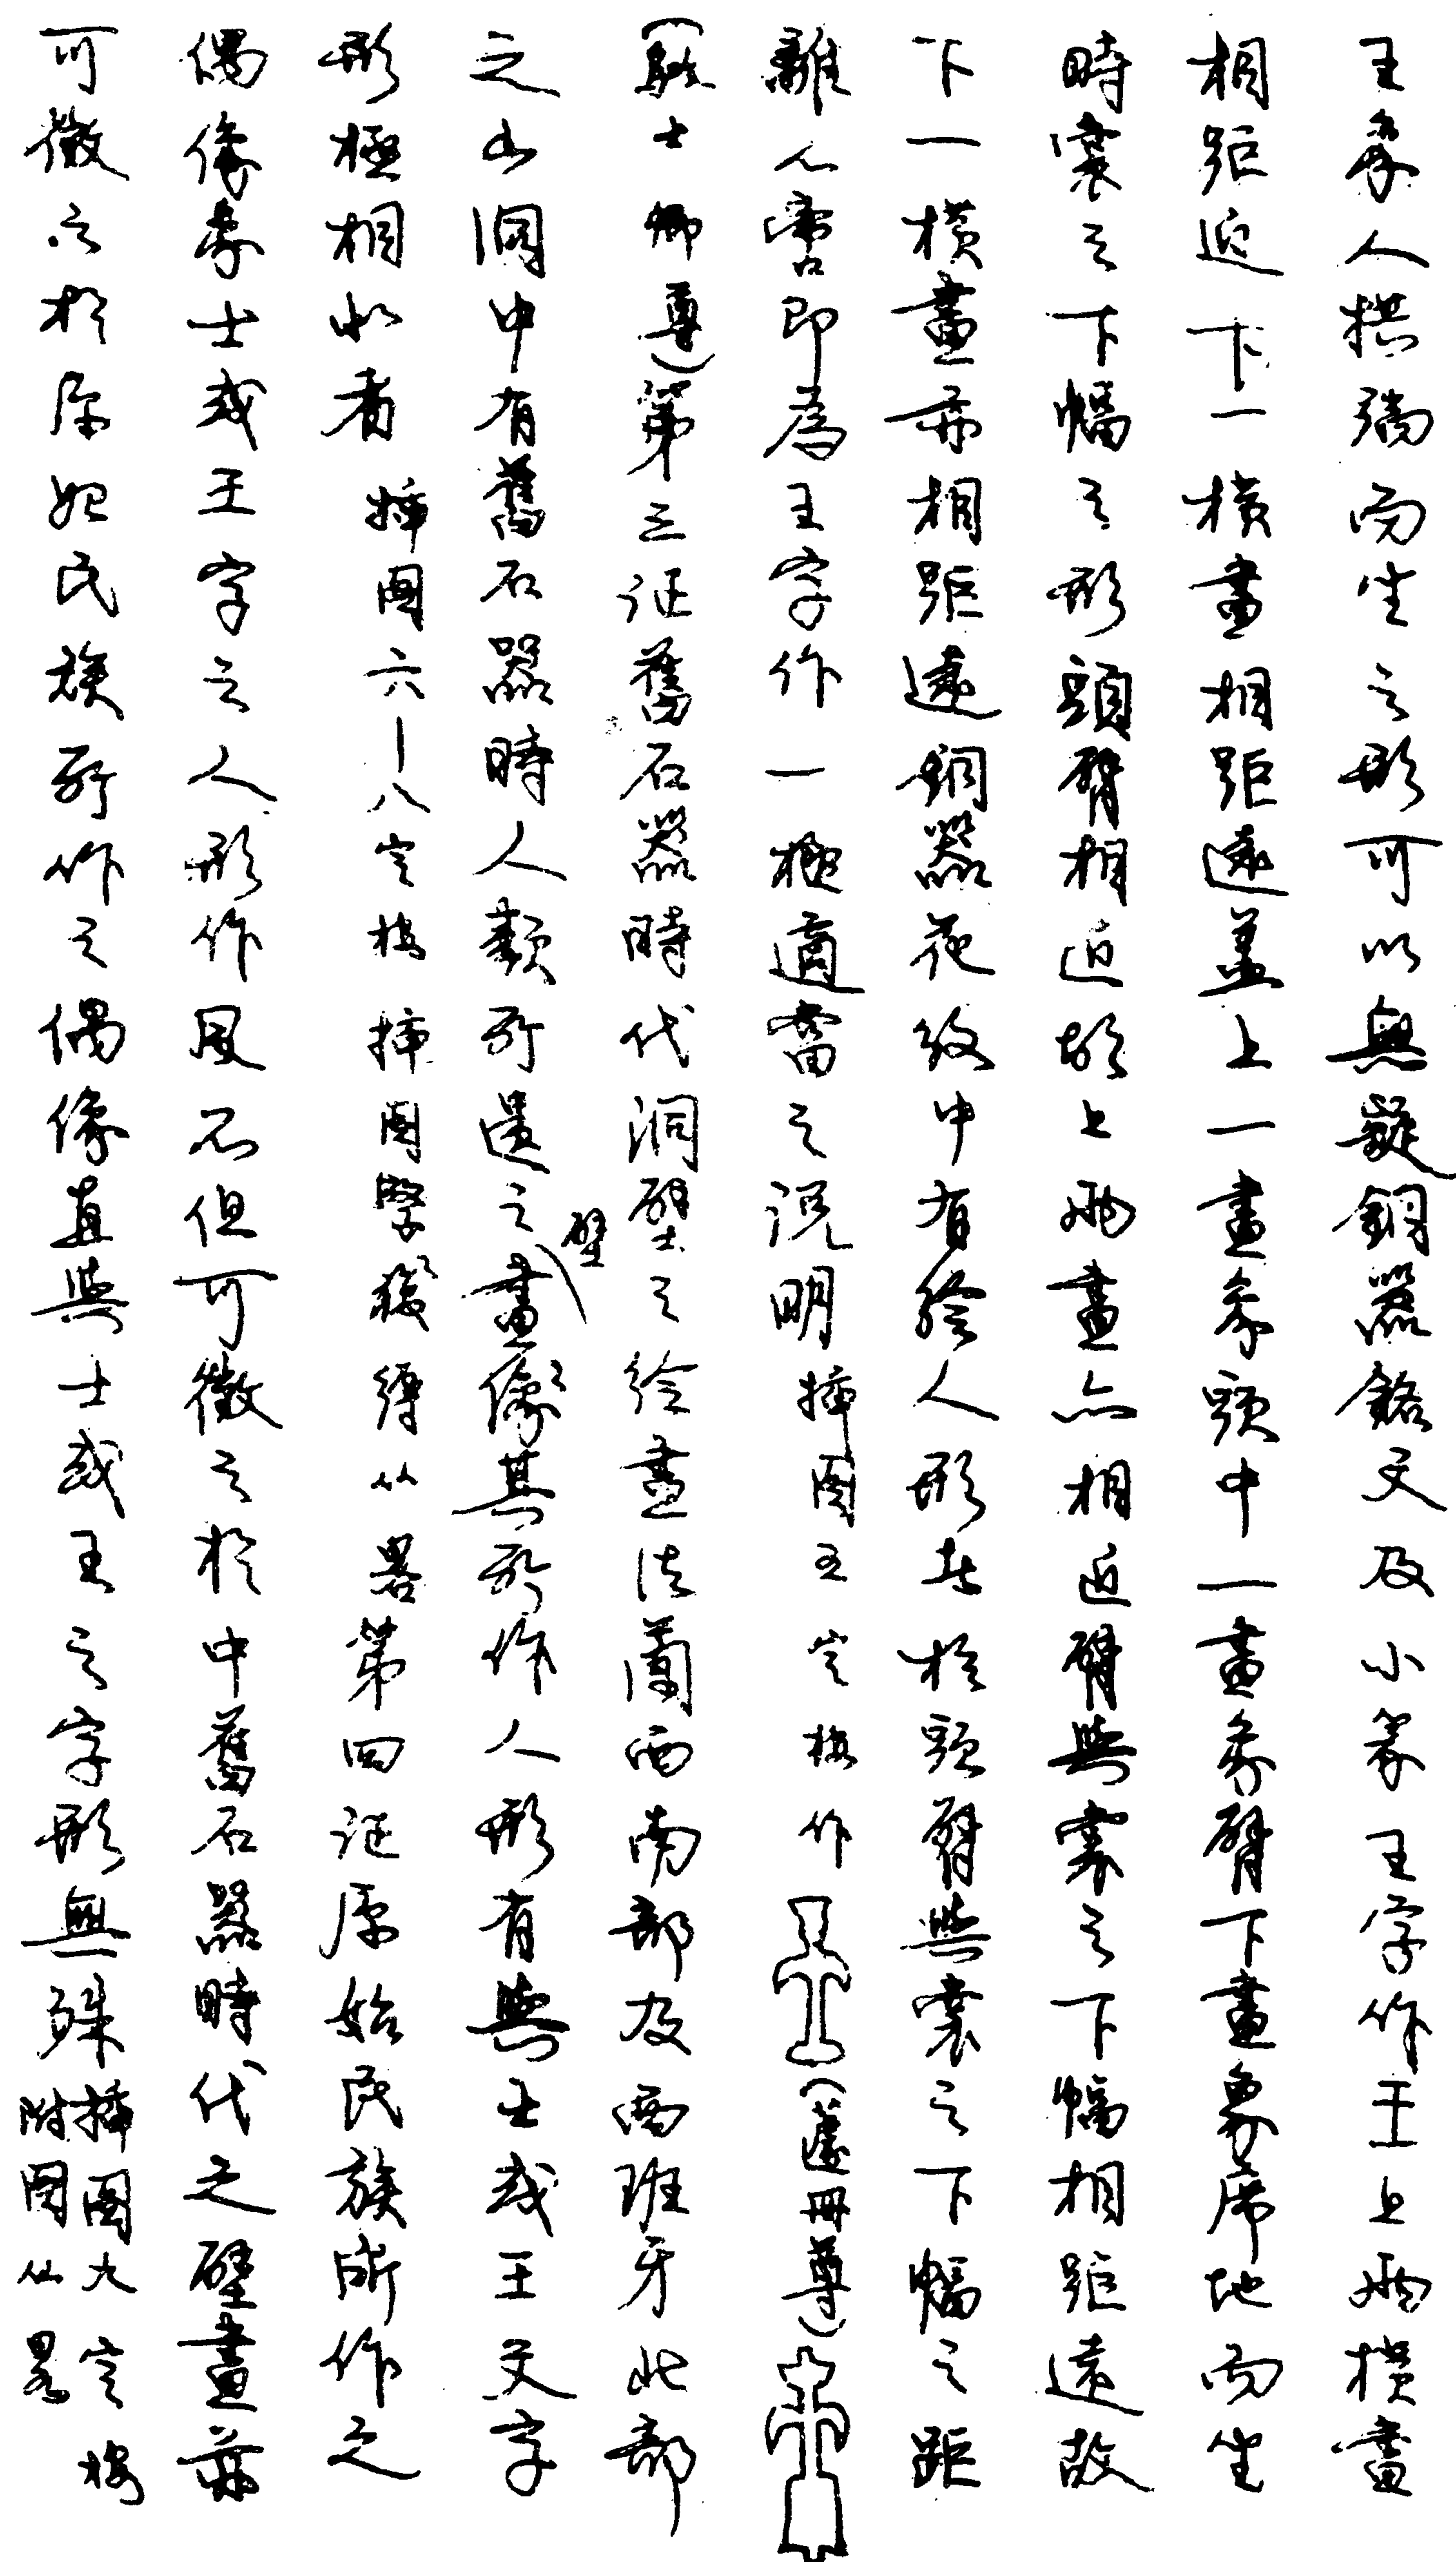 王象人拱端而坐之形可以無疑銅器銘文及小篆王字作王上兩橫畫
相距近下一橫畫相距遠蓋上一畫象頭中一畫象臂下畫象席地而坐
時裳之下幅之形頭臂相近故上兩畫亦相近臂與裳之下幅相距遠故
下一橫畫亦相距遠銅器花紋中有繪人形者於頭臂與裳之下幅之距
離人嘗即為王字作一極適當之說明插圖五 寔按作(蘧冊尊)
(駭士卿尊)第三证舊石器時代洞壁之绘畫法蘭西南部及西班牙此部
之山洞中有舊石器時人類所遺之壁畫像其所作人形有與士或王文字
形極相似者插圖六—八寔按插圖繁複縟从畧第四证原始民族所作之
偶像象士或王字之人形作風不但可徵之於中舊石器時代之壁畫并
可徵之於原始民族所作之偶像直與士或王之字形無殊插圖九寔按
附圖从畧